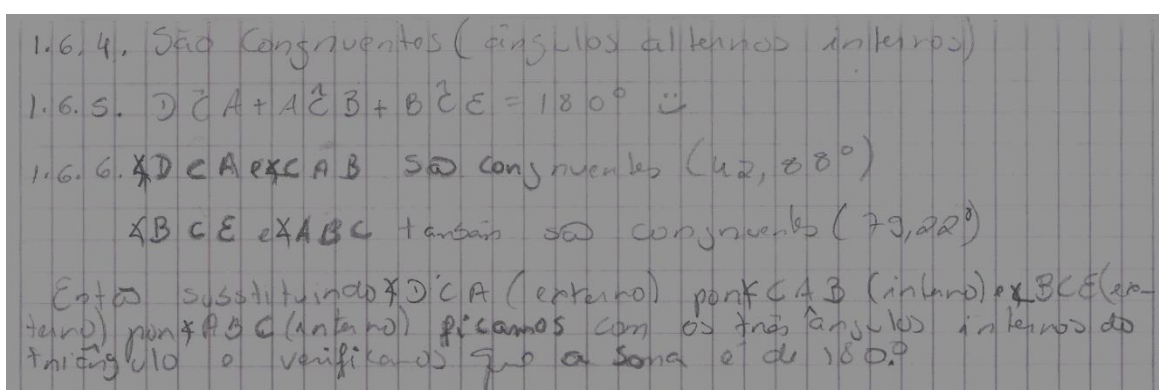 1.6.4. São Congruentes (ângulos alternos internos)
1.6.5. DĈA + AĈB + BĈE = 180° ü
1.6.6. ∢DCA e ∢CAB são congruentes (42,88°)
∢BCE e ∢ABC tanbén são congruentes (79,22°)
Então susstituindo ∢DCA (externo) por ∢CAB (interno) e ∢BCE (ex-
terno) por ∢ABC (interno) ficamos com os três ângulos internos do
triângulo e verificamos que a soma é de 180°